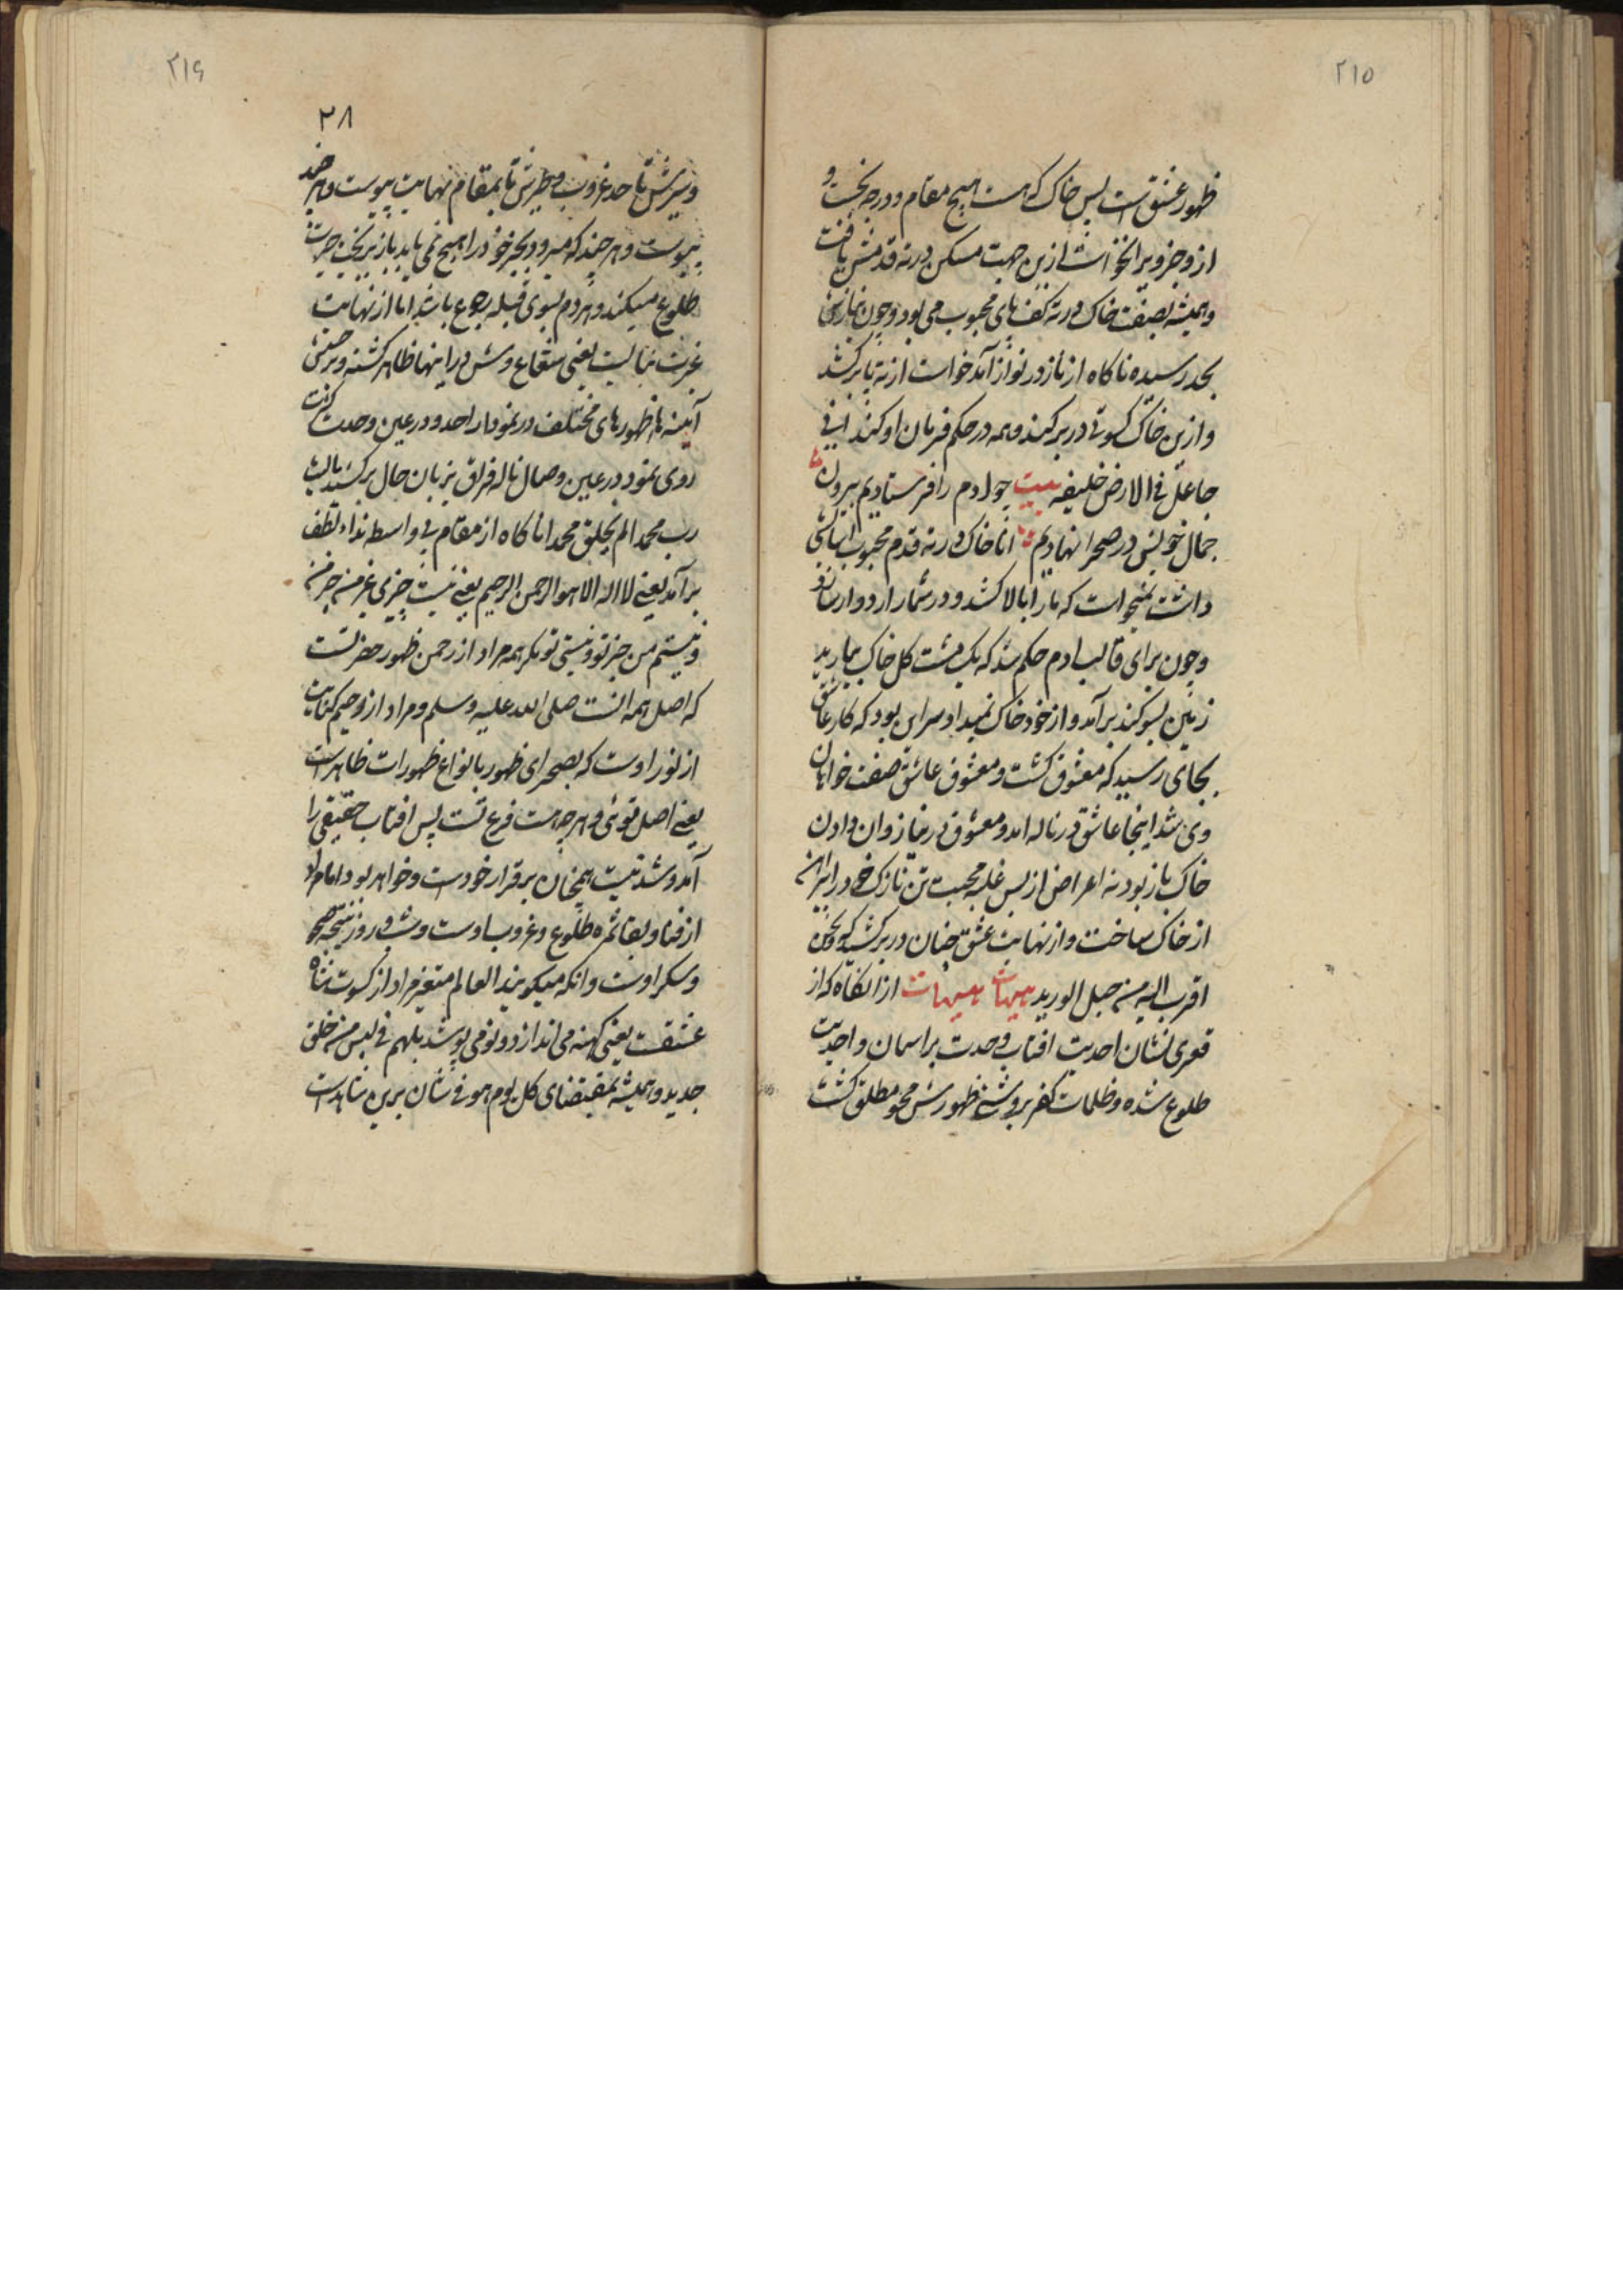 ۲۱۵
ظهور عشق است پس خاک که هست هیچ مقام و درجه نخست و
از وجز ویرا نخواست ازین جهت مسکن در ته قدمش یافت
و همیشه بصفت خاک در ته کف پای محبوب می بود و چون نیاز
بحد رسیده ناکاه از ناز در نواز آمد خواست از ته پا برکشد
و ازین خاک کسوتی در بر کند و همه در حکم فرمان او کند انی
جاعل فی الارض خلیفه بیت چو آدم را فرستادیم بیرون
جمال خویش در صحرا نهادیم اما خاک در ته قدم محبوب
داشت نمیخواست که مارا بالا کشد و در شمار آرد
و چون برای قالب آدم حکم شد که یک مشت کل خاک بیارید
زمین بسوکند برآمد و از خود خاک نمیداد سر این بود که کار عاشق
بجای رسید که معشوق کشت و معشوق عاشق صفت خواهان
وی شد اینجا عاشق در ناله آمد و معشوق در نیاز و ان دادن
خاک باز بود نه اعراض از بس غلبه محبت تن نازک خود را
از خاک ساخت و از نهایت عشق چنان در بر کشید که و نحن
اقرب الیه من حبل الورید هیهات هیهات از انکاه که از
قعر بی نشان احدیت افتاب وحدت بر اسمان واحدیت
طلوع شده و ظلمات کفر بروشنی ظهورش محو مطلق کشت
۲۱۶
۲۸
و سیرش تا حد غروب و طیرش تا بمقام نهایت پیوست و هر چند
پیوست و هر چند که میرود بجز خود را هیچ نمی یابد باز بر
طلوع میکند و هر دم بسوی قبله رجوع اما از نهایت
غیرت یعنی شعاع وش در اینها ظاهر کشته و بر
آیینه ها ظهورهای مختلف در نمودار احد و در عین وحدت کثرت
روی نمود در عین وصال ناله فراق بزبان حال برکشید یا لیت
رب محمد لم یخلق محمدا ناکاه از مقام بی واسطه نداء لطف
برآمد یعنی لا اله الا هو الرحمن الرحیم یعنی نیست چیزی غیر من جز من
و نیستم من جز تو و نیستی تو مکر همه مراد از رحمن ظهور حضرتست
که اصل همه انست صلی الله علیه وسلم و مراد از رحیم کنایت
از نور اوست که بصحرای ظهور بانواع ظهورات ظاهرست
یعنی اصل توئی و هر چه هست فرع تست پس افتاب حقیقی را
آمد و شد نیست همچنان بر قرار خودست و خواهد بود اما مراد
از فنا و بقا ثمره طلوع و غروب اوست و شب و روز نتیجه صحو
و سکر اوست و انکه میکویند العالم متغیر مراد از کسوت شاه
عشقست یعنی کهنه می اندازد و نو می پوشد بل هم فی لبس من خلق
جدید و همیشه بمقتضای کل یوم هو فی شان برین شاهدست